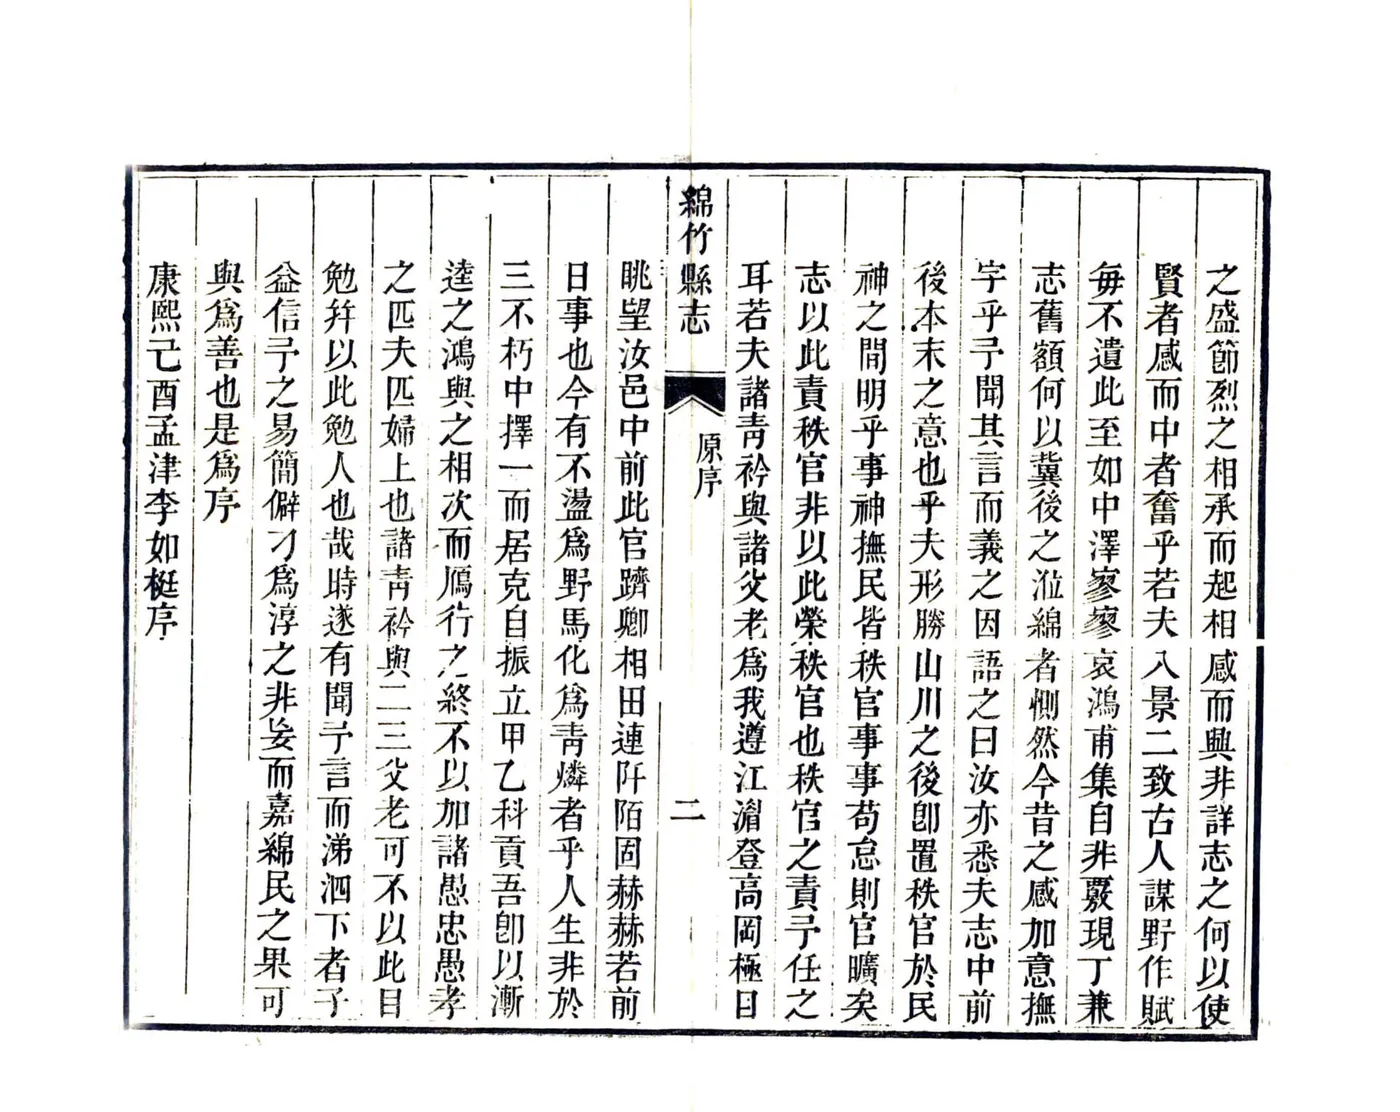 之盛節烈之相承而起相感而興非詳志之何以使
賢者感而中者奮乎若夫八景二致古人謀野作賦
每不遺此至如中澤寥寥哀鴻甫集自非覈現丁兼
志舊額何以冀後之涖綿者惻然今昔之感加意撫
字乎予聞其言而義之因語之曰汝亦悉夫志中前
後本末之意也乎夫形勝山川之後卽置秩官於民
神之間明乎事神撫民皆秩官事事苟怠則官曠矣
志以此責秩官非以此榮秩官也秩官之責予任之
耳若夫諸靑衿與諸父老爲我遵江湄登高岡極目
綿竹縣志
原序
二
眺望汝邑中前此官躋卿相田連阡陌固赫赫若前
日事也今有不盪爲野馬化爲靑燐者乎人生非於
三不朽中擇一而居克自振立甲乙科貢吾卽以漸
逵之鴻與之相次而鴈行之終不以加諸愚忠愚孝
之匹夫匹婦上也諸靑衿與二三父老可不以此自
勉幷以此勉人也哉時遂有聞予言而涕泗下者予
益信予之易簡僻才爲淳之非妄而嘉綿民之果可
與爲善也是爲序
康熙己酉孟津李如梃序